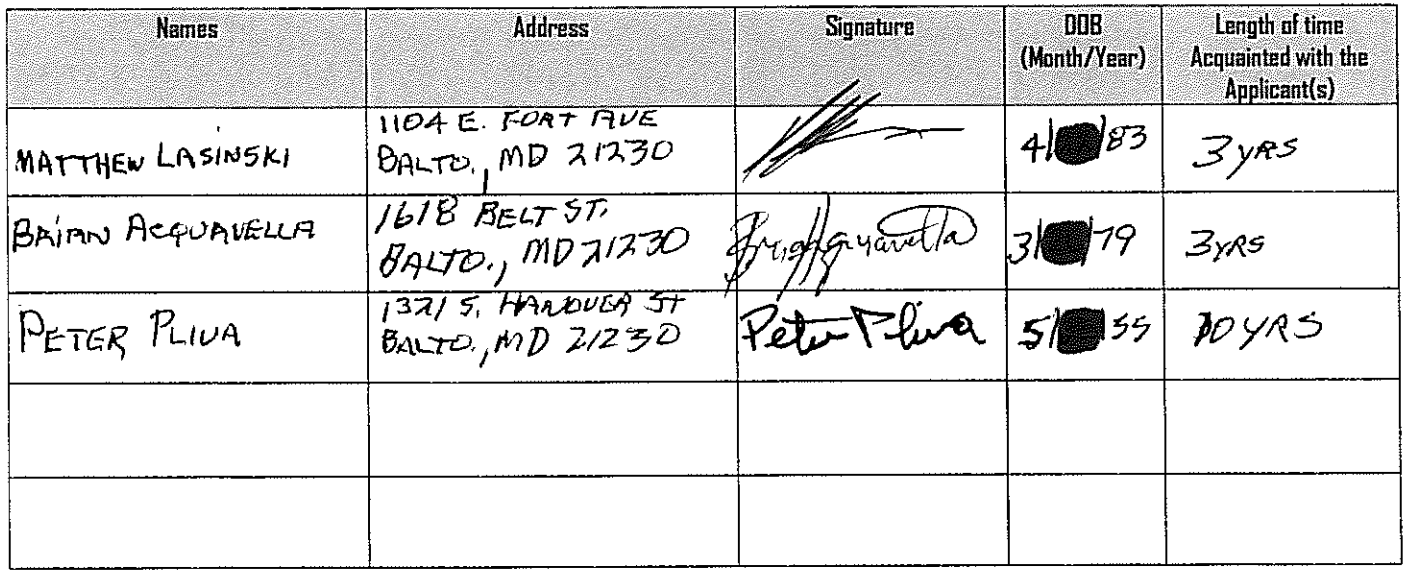 Names
Address
Signature
DOB
(Month/Year)
Length of time
Acquainted with the
Applicant(s)
MATTHEW LASINSKI
1104 E. FORT AVE
BALTO., MD 21230
4/ /83
3 YRS
BRIAN ACQUAVELLA
1618 BELT ST.
BALTO., MD 21230
Brian Acquavella
3/ /79
3 YRS
PETER PLIVA
1321 S. HANOVER ST
BALTO., MD 21230
Peter Pliva
5/ /55
10 YRS